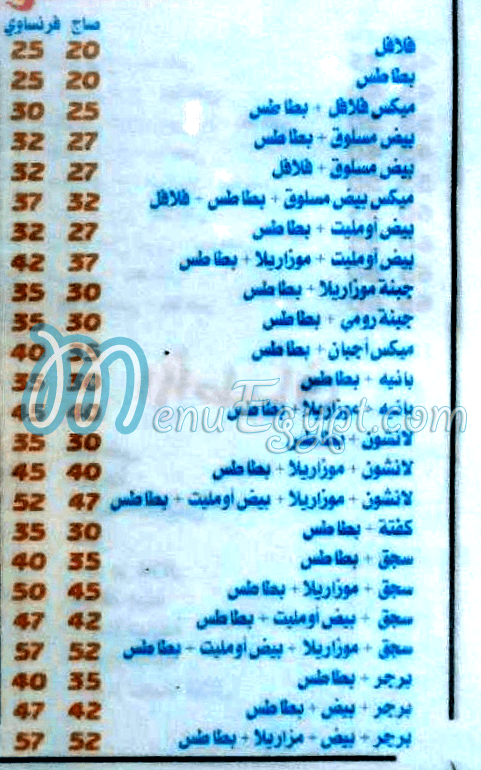 صاج فرنساوي
فلافل 20 25
بطاطس 20 25
ميكس فلافل + بطاطس 25 30
بيض مسلوق + بطاطس 27 32
بيض مسلوق + فلافل 27 32
ميكس بيض مسلوق + بطاطس + فلافل 32 37
بيض أومليت + بطاطس 27 32
بيض أومليت + موزاريلا + بطاطس 37 42
جبنة موزاريلا + بطاطس 30 35
جبنة رومي + بطاطس 30 35
ميكس أجبان + بطاطس 35 40
بانيه + بطاطس 30 35
بانيه + موزاريلا + بطاطس 40 45
لانشون + بطاطس 30 35
لانشون + موزاريلا + بطاطس 40 45
لانشون + موزاريلا + بيض أومليت + بطاطس 47 52
كفتة + بطاطس 30 35
سجق + بطاطس 35 40
سجق + موزاريلا + بطاطس 45 50
سجق + بيض أومليت + بطاطس 42 47
سجق + موزاريلا + بيض أومليت + بطاطس 52 57
برجر + بطاطس 35 40
برجر + بيض + بطاطس 42 47
برجر + بيض + مزاريلا + بطاطس 52 57
MenuEgypt.com